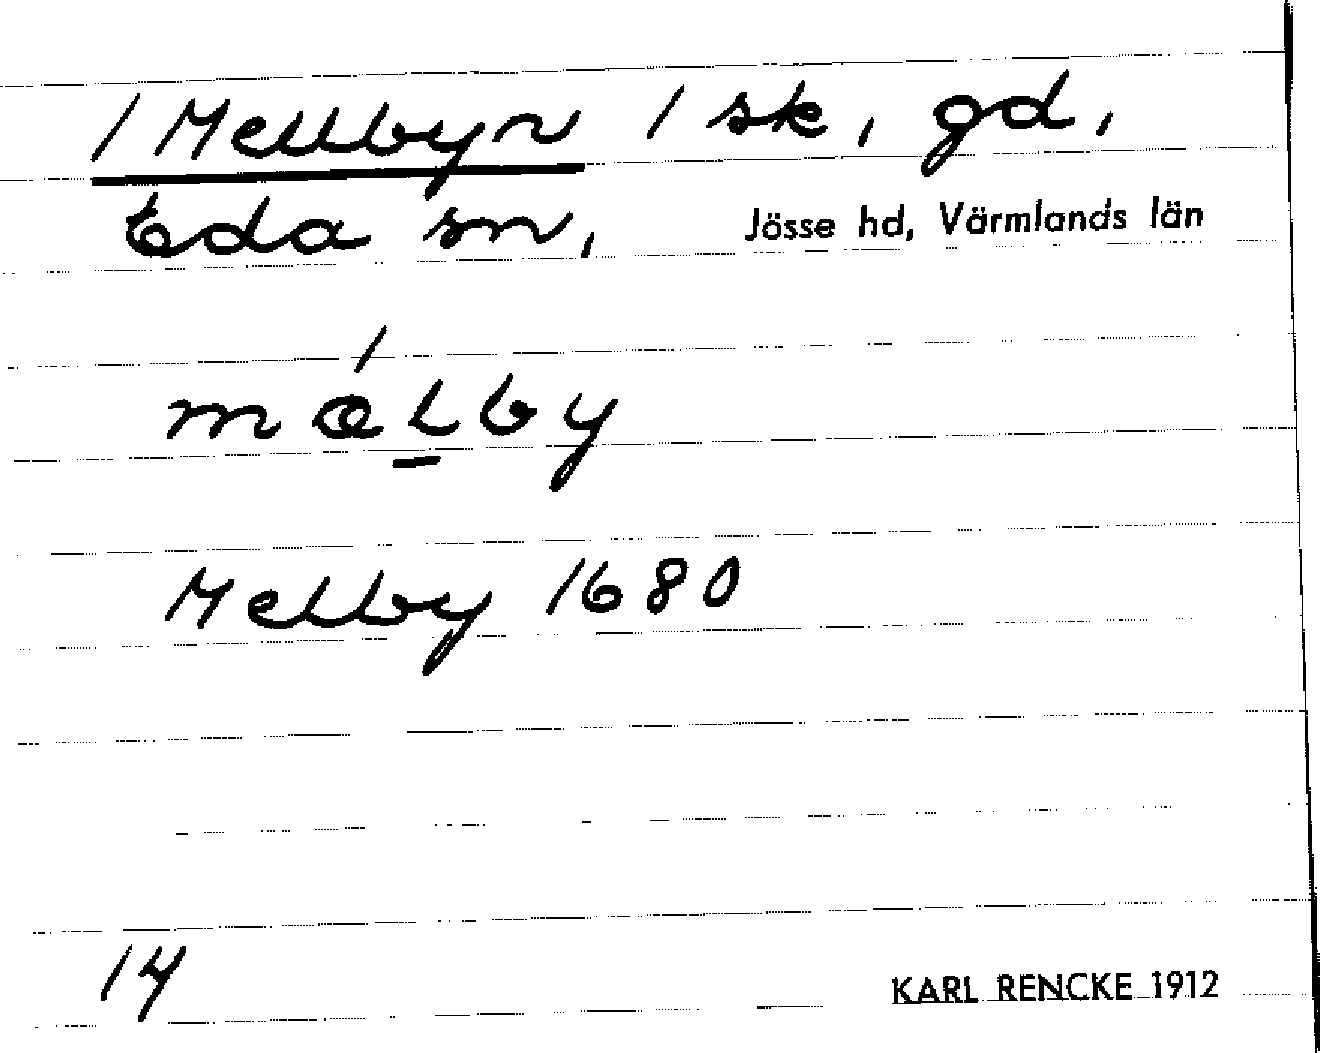 / Mellbyn / sk, gd,
Eda sn, Jösse hd, Värmlands län
mœ́lby
Melby 1680
14
KARL RENCKE 1912